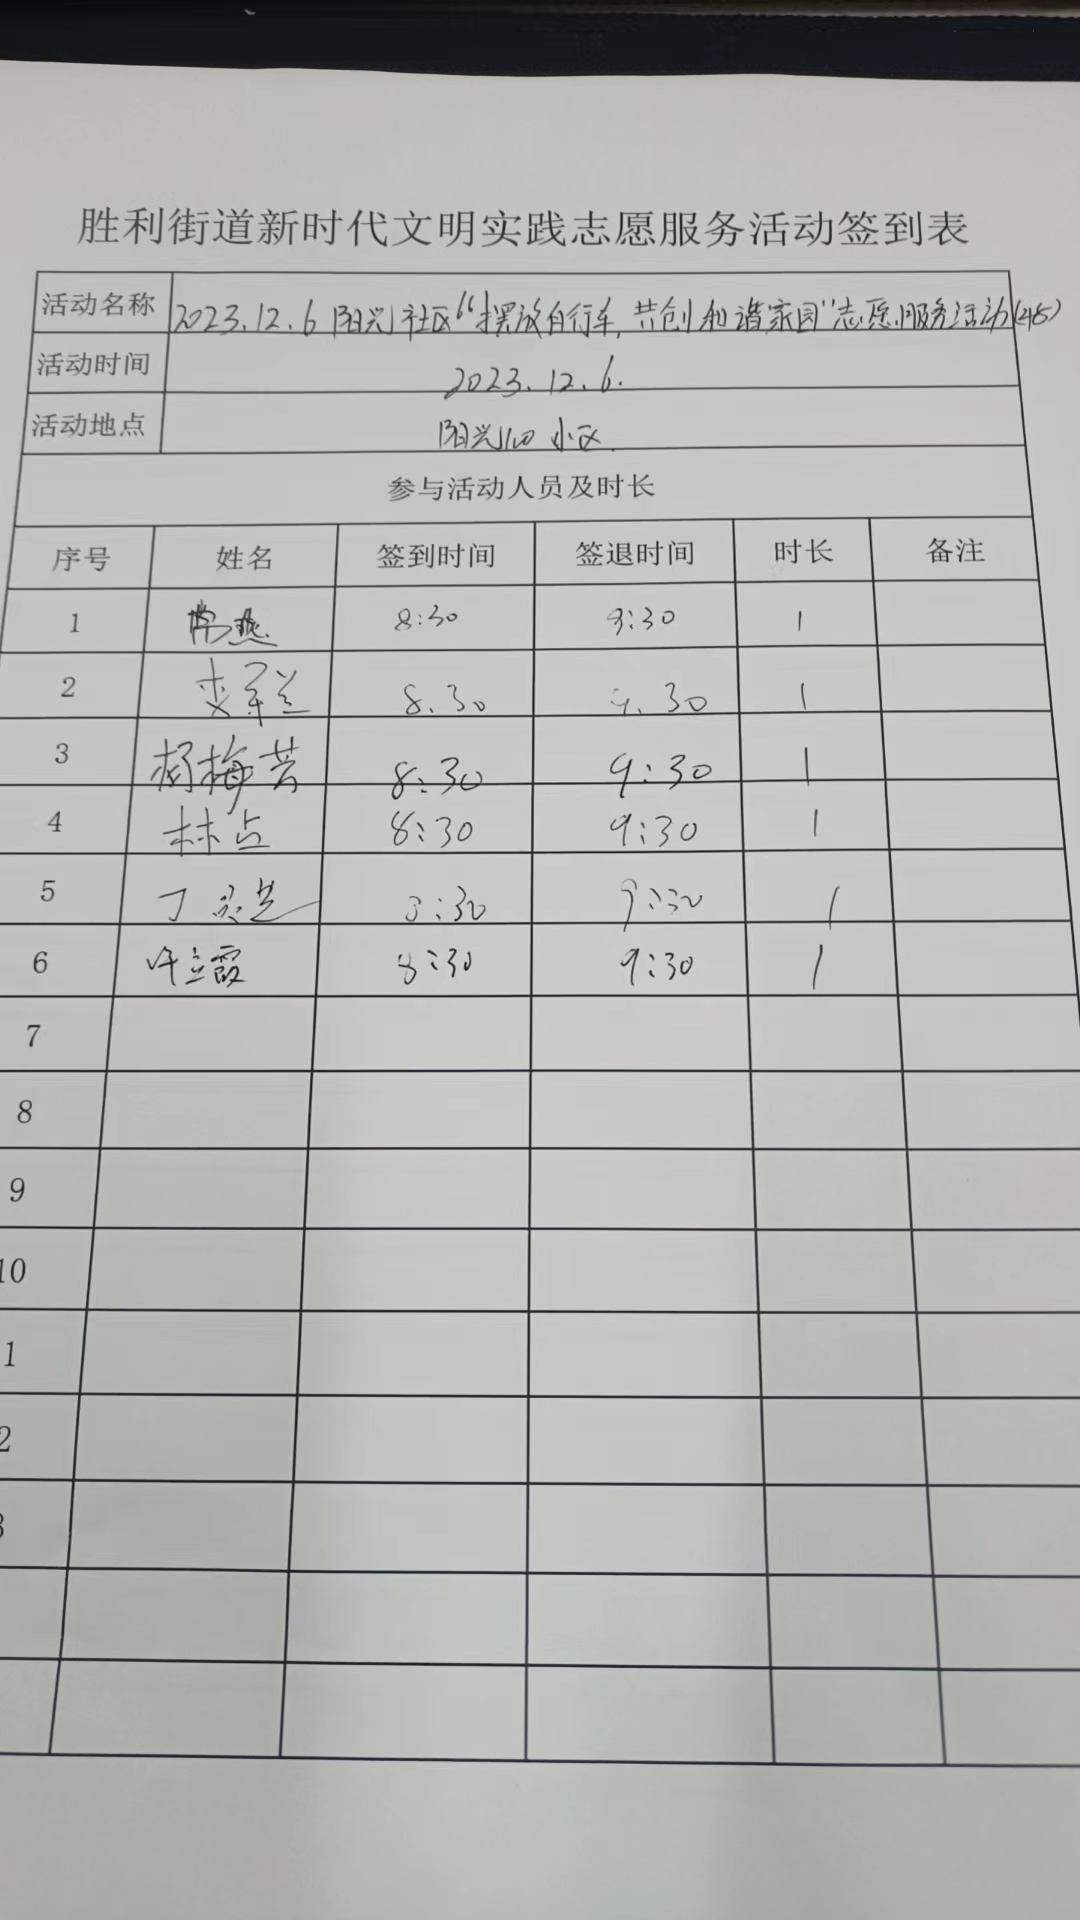 胜利街道新时代文明实践志愿服务活动签到表
活动名称 2023.12.6 阳兴社区“摆放自行车,共创和谐家园”志愿服务活动(48)
活动时间 2023.12.6.
活动地点 阳兴 小区
参与活动人员及时长
序号 姓名 签到时间 签退时间 时长 备注
1 常燕 8:30 9:30 1
2 8.30 9.30 1
3 杨梅芳 8:30 9:30 1
4 林占 8:30 9:30 1
5 丁灵芝 8:30 9:30 1
6 许立霞 8:30 9:30 1
7
8
9
10
1
2
3